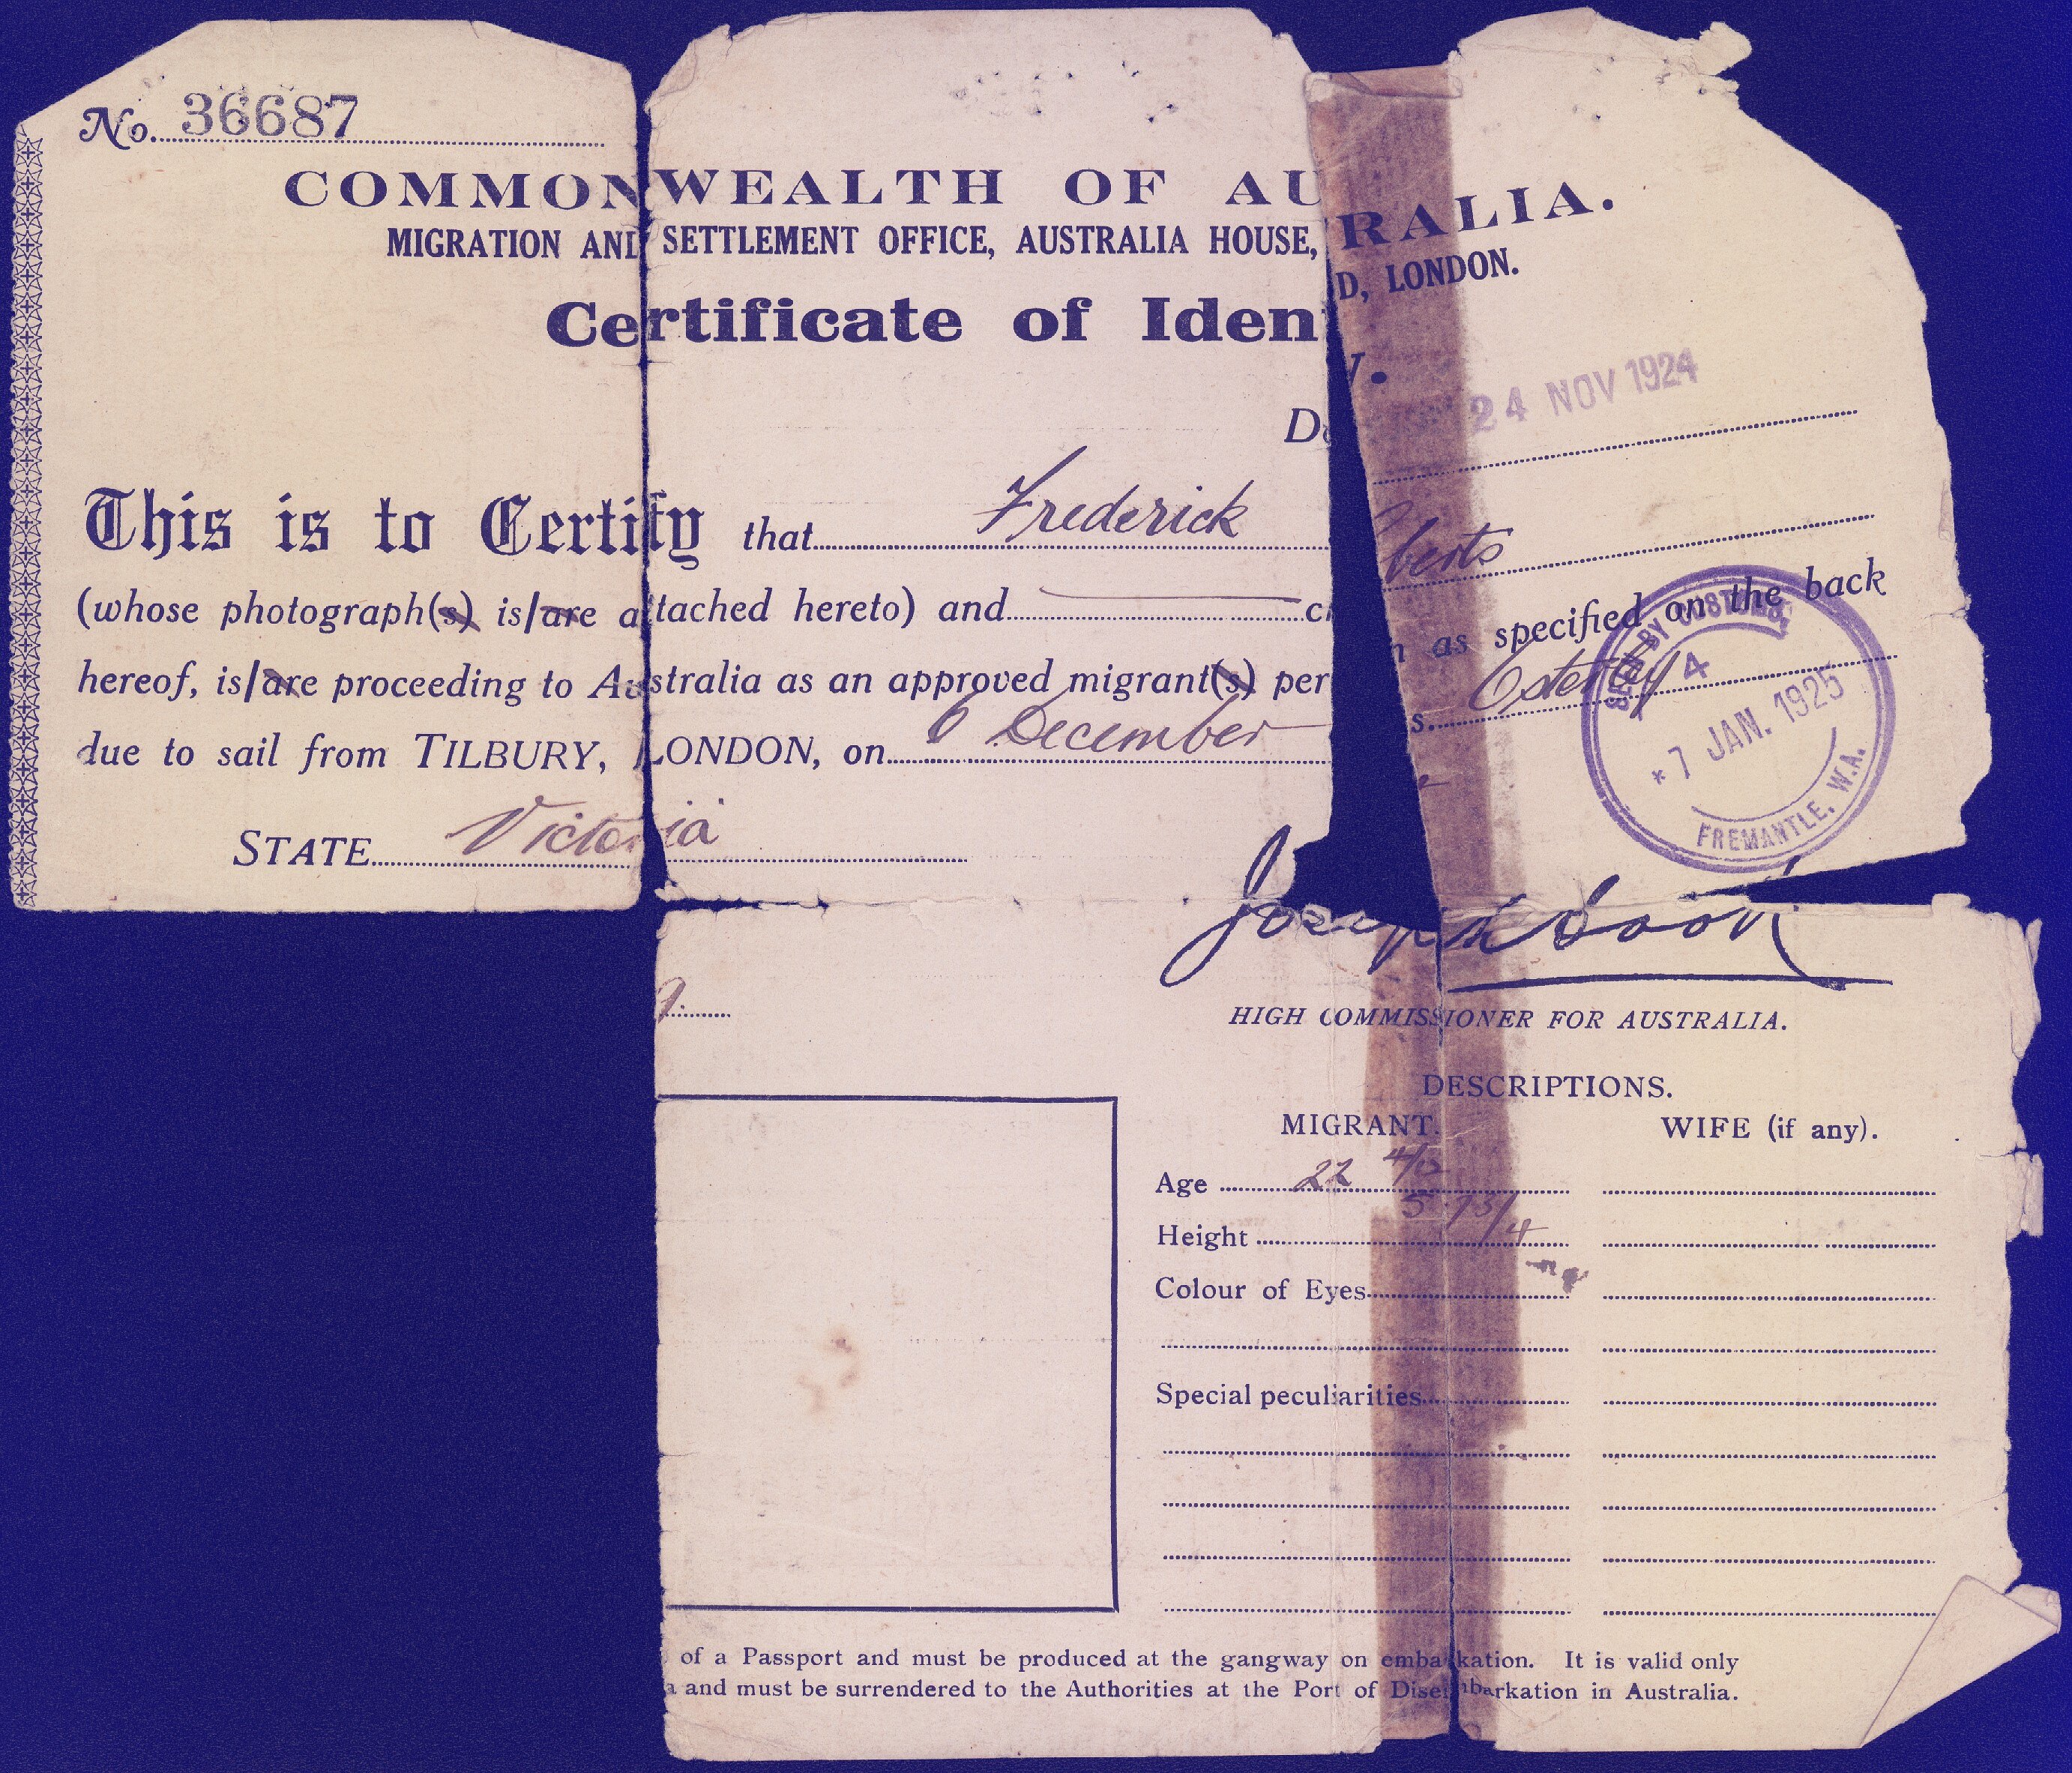 No. 36687
COMMONWEALTH OF AU RALIA.
MIGRATION AND SETTLEMENT OFFICE, AUSTRALIA HOUSE, D, LONDON.
Certificate of Iden y.
Da 24 NOV 1924
This is to Certify that Frederick berts
(whose photograph(s) is/are attached hereto) and n as specified on the back
hereof, is/are proceeding to Australia as an approved migrant(s) per s. Osterley
due to sail from TILBURY, LONDON, on 6 December
STATE Victoria
SEEN BY CUSTOMS
4
* 7 JAN. 1925
FREMANTLE, W.A.
Joseph Cook
HIGH COMMISSIONER FOR AUSTRALIA.
DESCRIPTIONS.
MIGRANT. WIFE (if any).
Age 22 4/12
Height 5 7 3/4
Colour of Eyes
Special peculiarities
of a Passport and must be produced at the gangway on embarkation. It is valid only
a and must be surrendered to the Authorities at the Port of Disembarkation in Australia.